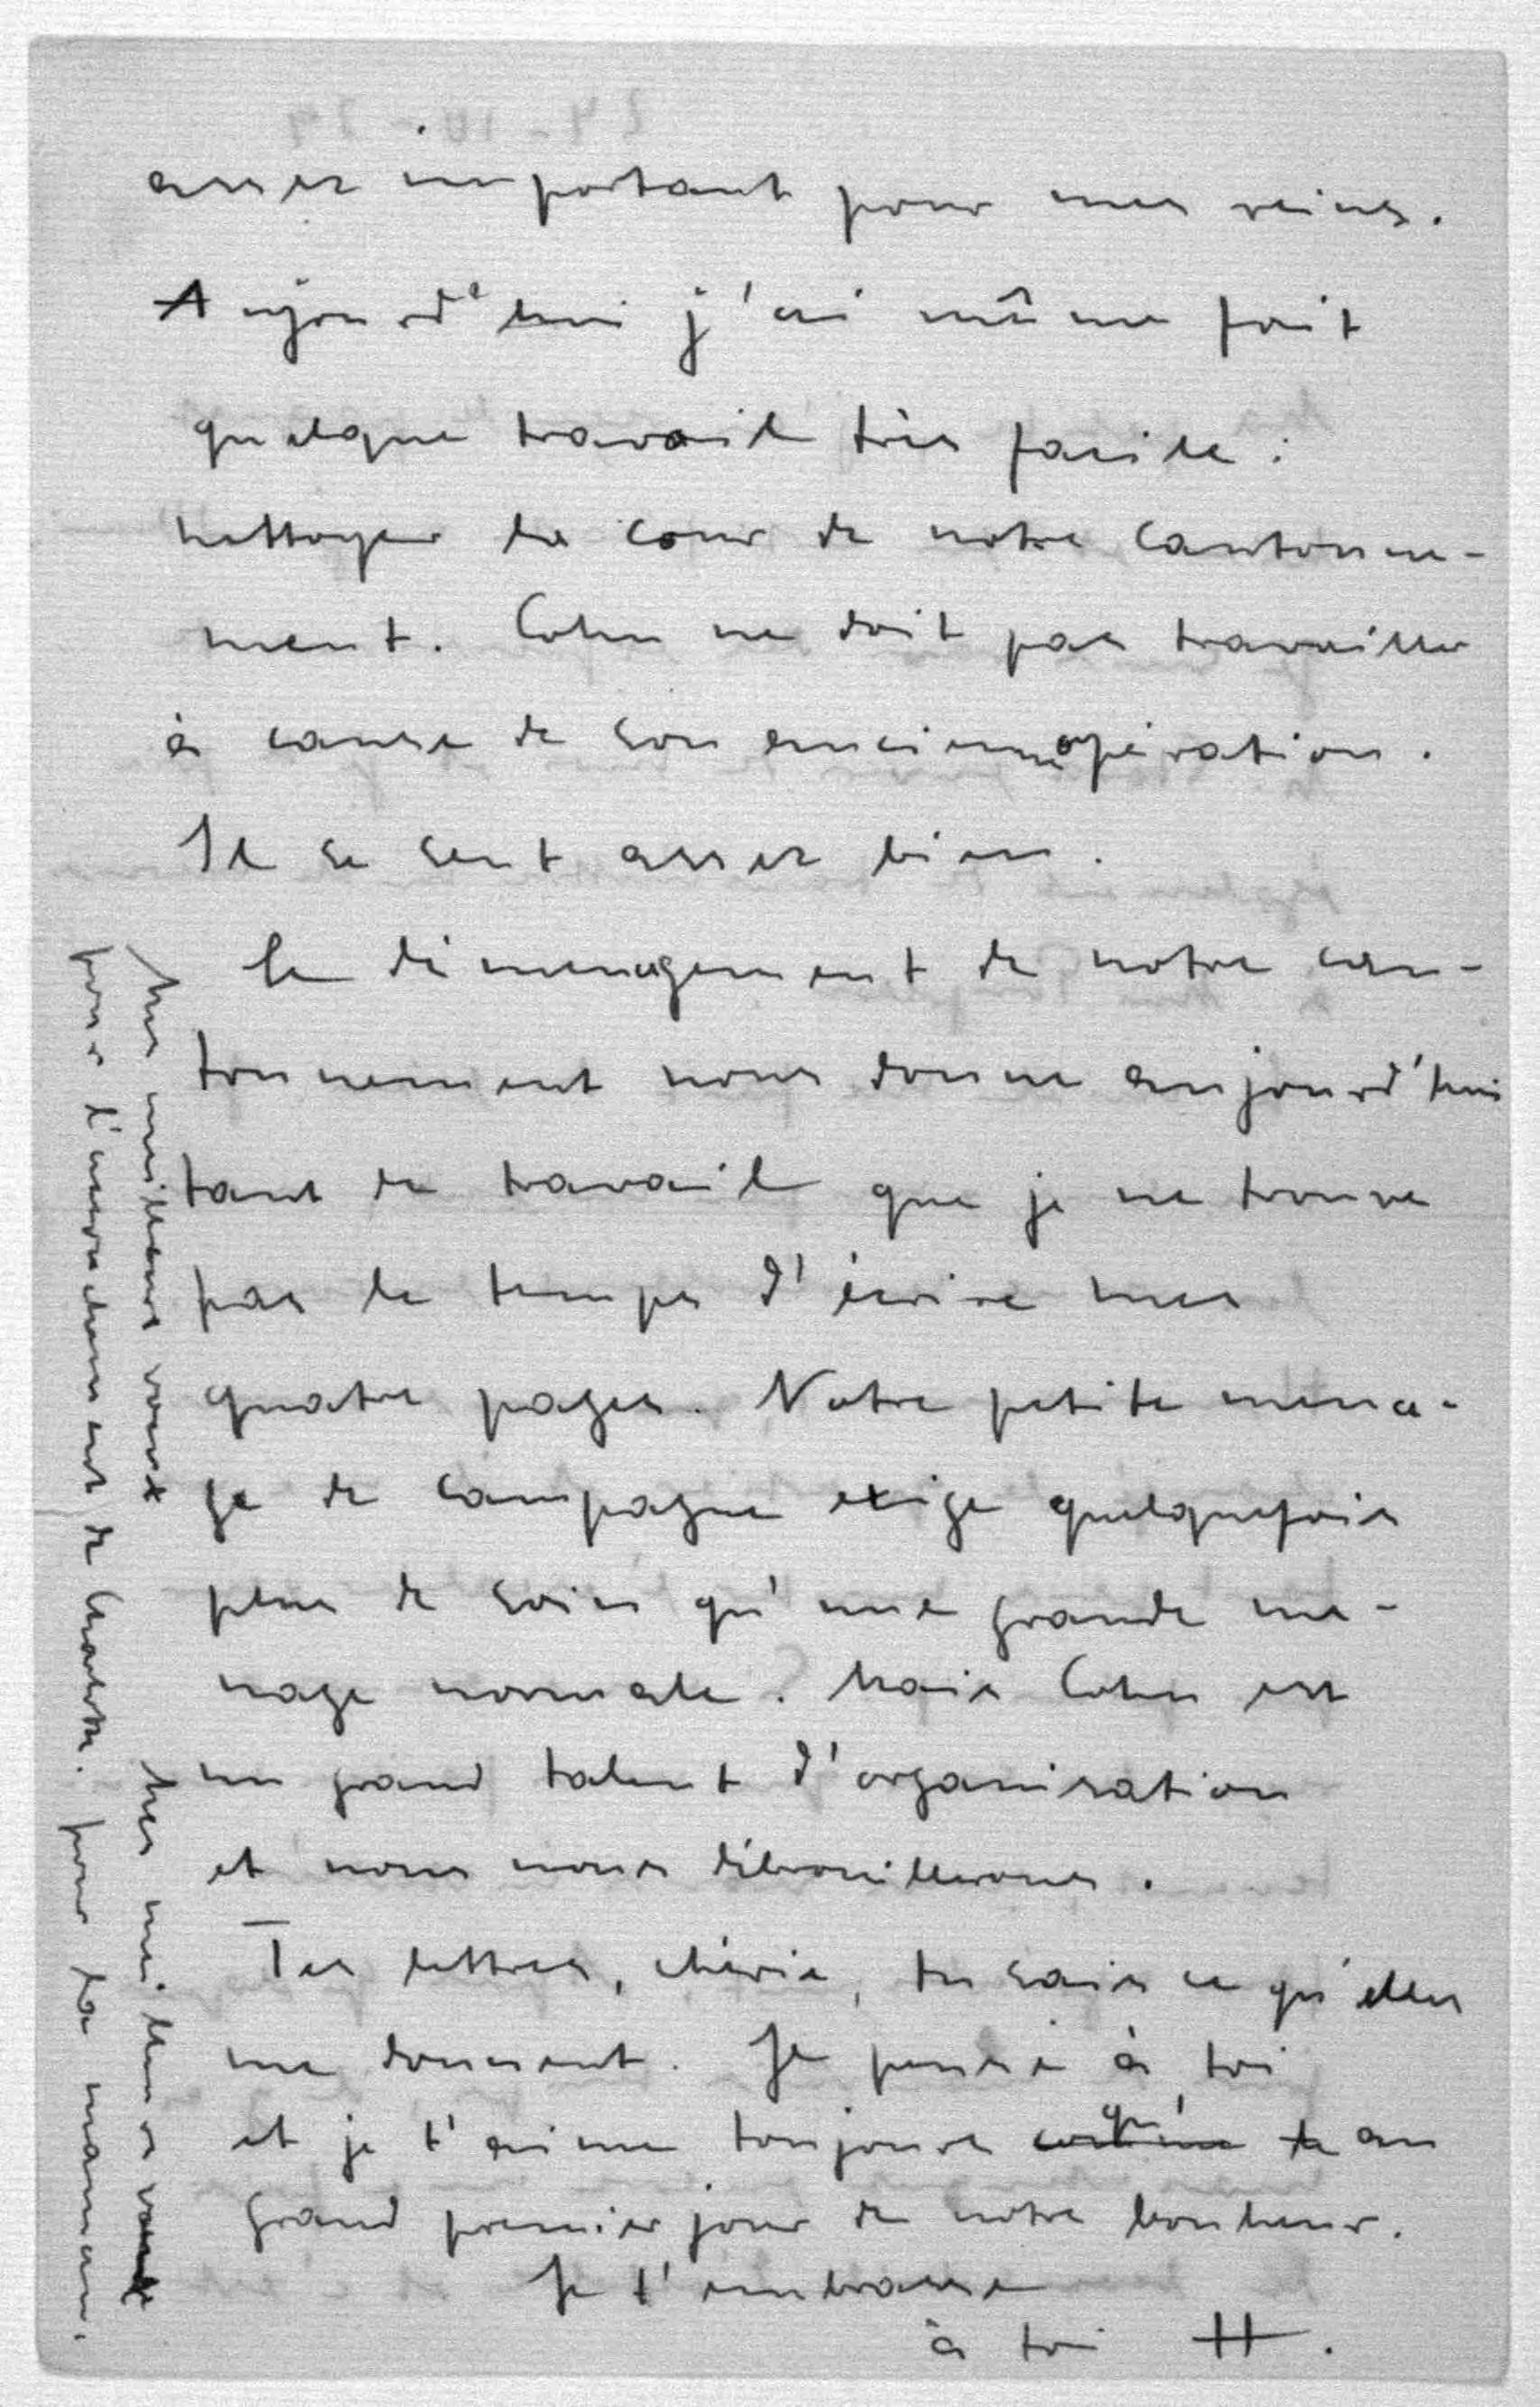 assez important pour mes reins.
Aujourd'hui j'ai même fait
quelque travail très facile :
nettoyer la cour de notre cantonne-
ment. Cohn ne doit pas travailler
à cause de son ancienne opération.
Il se sent assez bien.
Le déménagement de notre can-
tonnement nous donne aujourd'hui
tant de travail que je ne trouve
pas le temps d'écrire mes
quatre pages. Notre petite mena-
ge de campagne exige quelquefois
plus de soins qu'une grande me-
nage normale. Mais Cohn est
un grand talent d'organisation
et nous nous débrouillerons.
Tes lettres, chérie, tu sais ce qu'elles
me donnent. Je pense à toi
et je t'aime toujours qu'au
grand premier jour de notre bonheur.
Je t'embrasse
à toi H.
Mes meilleurs voeux
pour l'accouchement de
Mes meilleurs voeux
pour la maman.